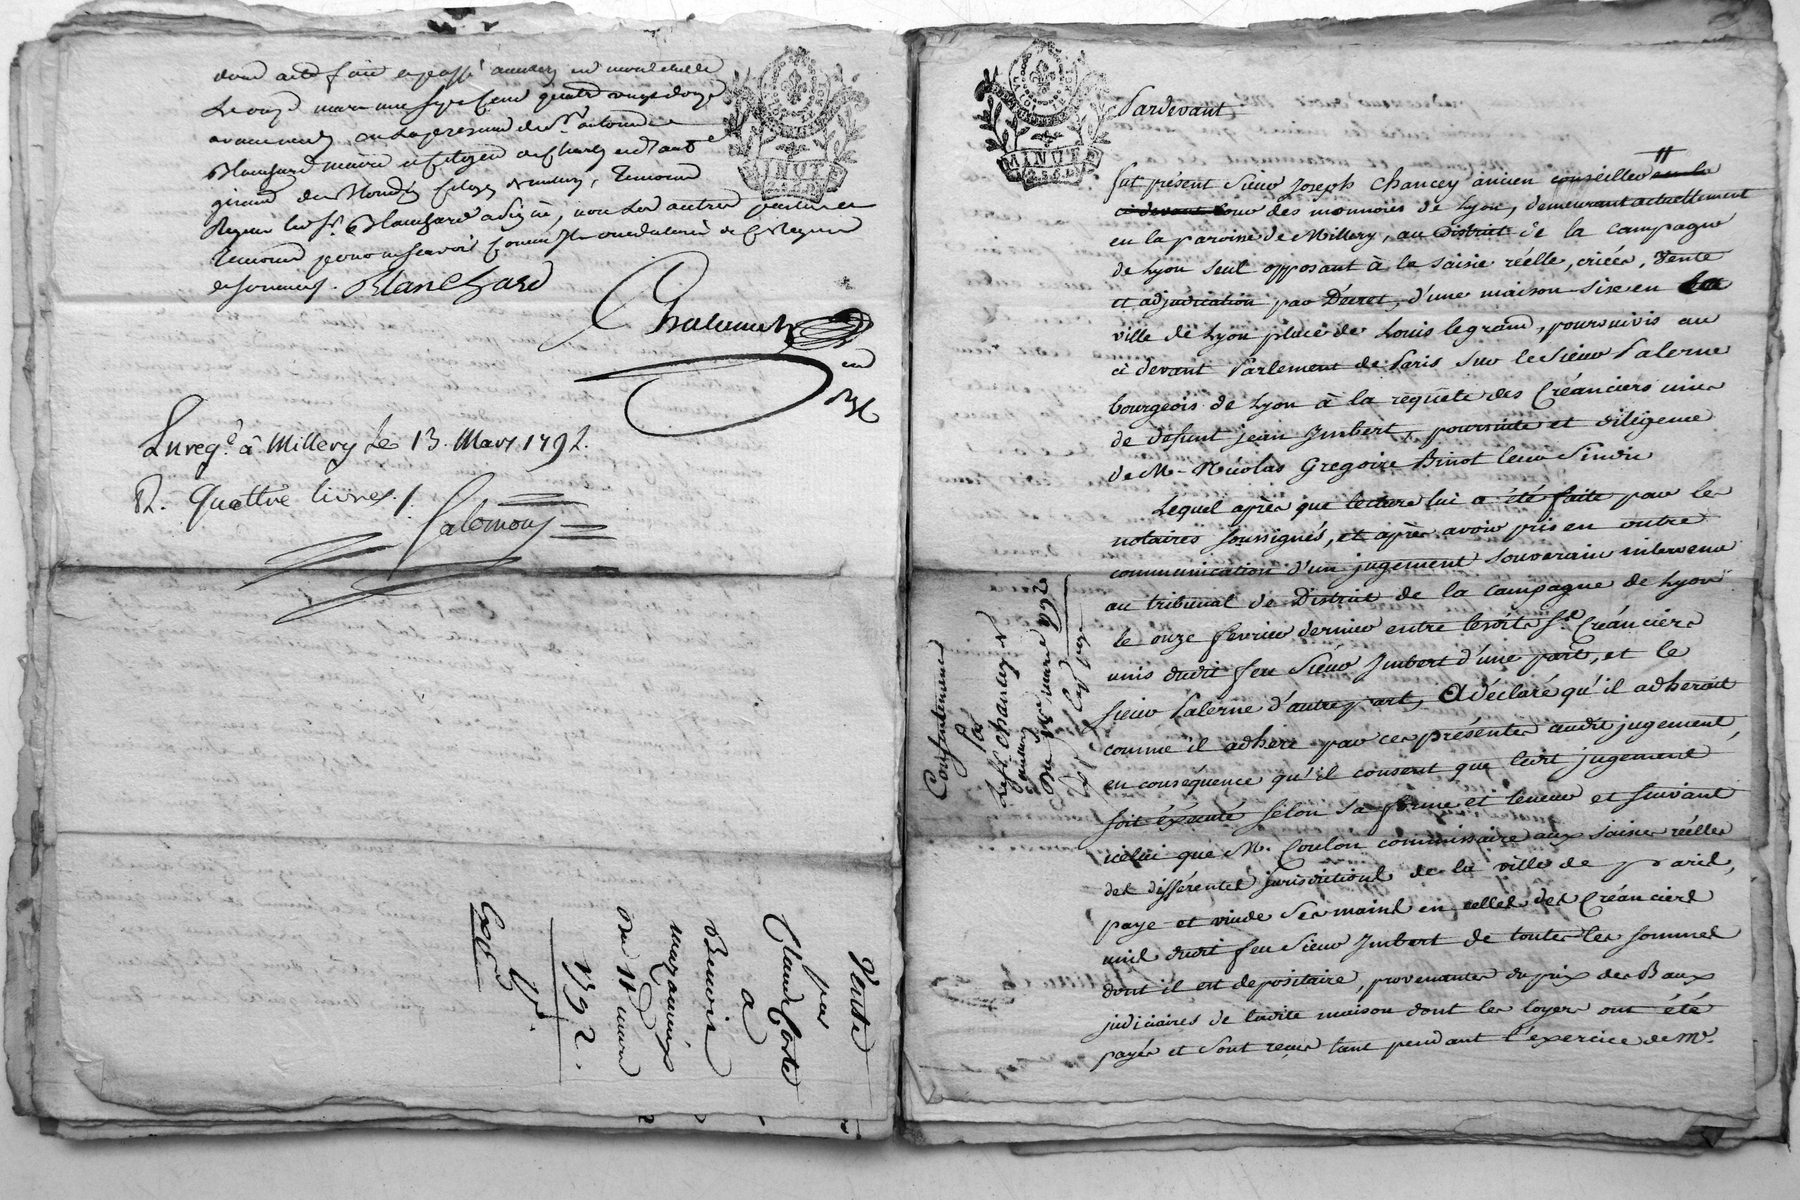 dont acte fait et passé
Le onze mars mil sept cent quatre vingt douze
avant midy, en la presence de Sr. antoine
Blanchard maire et Citoyen de Charly et
giraud de Citoyen temoins
Requis led. Sr. Blanchard a signé, non les autres parties et
temoins pour ne scavoir comme ils ont declaré de ce Requis
et sommés. Blanchard
Enregé. à Millery Le 13. Mars 1792.
R. Quattre livres /.
Salomon
Vente
par
Claude Coste
a
Benoit
Du 11 mars
1792.
Expé.
MINUTE
LA LOI LE ROI
MINUTE
Pardevant
fut présent Sieur Joseph Chancey ancien conseiller en la
ci devant Cour des monnoies de Lyon, demeurant actuellement
en la paroisse de Millery, au District de la Campagne
de Lyon seul opposant à la saisie réelle, criées, Vente
et adjudication par Décret, d'une maison sise en la
ville de Lyon place de Louis le grand, poursuivis au
ci devant Parlement de Paris sur le Sieur Palerne
bourgeois de Lyon à la requête des Créanciers unis
de defunt jean Imbert, poursuite et diligence
de M. Nicolas Gregoire Binot leur Sindic
Lequel après que lecture lui a été faite par les
notaires soussignés, et après avoir pris en outre
communication d'un jugement souverain intervenu
au tribunal de District de la Campagne de Lyon
le onze fevrier dernier entre lesdits Srs. Créanciers
unis dudit feu Sieur Imbert d'une part, et le
Sieur Palerne d'autre part, A déclaré qu'il adheroit
comme il adhere par ces présentes audit jugement,
en conséquence qu'il consent que ledit jugement
soit éxécuté selon sa forme et teneur et suivant
icelui que M. Coulon commissaire aux saisies réelles
des différentes jurisdictions de la ville de paris,
paye et vuide ses mains en celles des Créanciers
unis dudit feu Sieur Imbert de toutes les sommes
dont il est depositaire, provenantes du prix des Baux
judiciaires de ladite maison dont les loyers ont été
payés et sont reçus tant pendant l'exercice de Mr.
Consentement
Par
Le Sr. Chancey
Du mars 1792